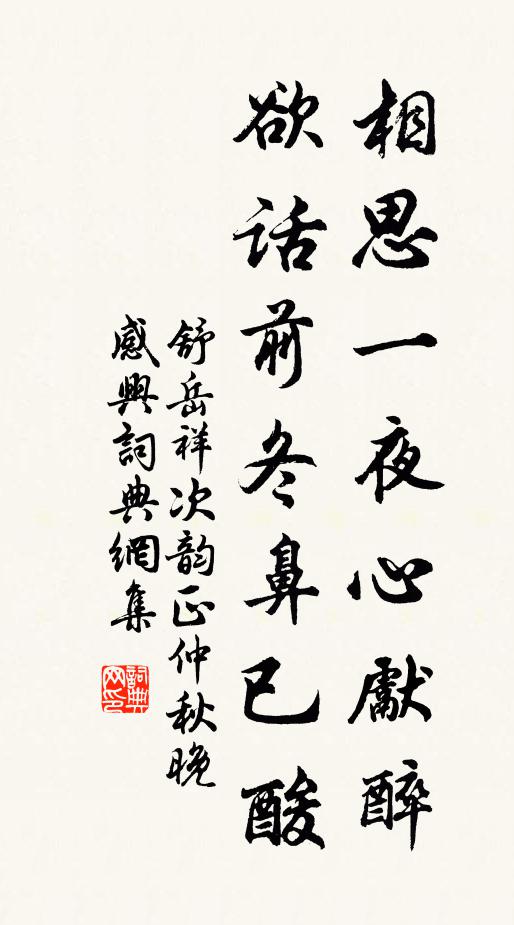 相思一夜心獻醉
欲話前冬鼻已酸
舒岳祥次韵正仲秋晚
感興詞典網集
詞典网印